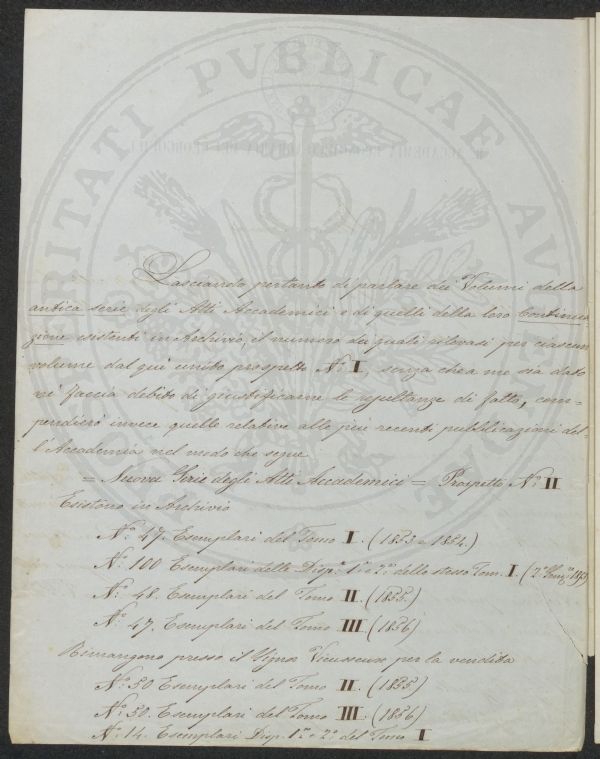 PROSPERITATI PVBLICAE AVGENDAE
Lasciando pertanto di parlare dei Volumi della
antica serie degli Atti Accademici e di quelli della loro Continua-
zione esistenti in Archivio, il numero dei quali rilevasi per ciascun
volume dal qui unito prospetto N.º I, senza che a me sia dato
nè faccia debito di giustificarne le resultanze di fatto, com-
pendierò invece quelle relative alle più recenti pubblicazioni del-
l'Accademia nel modo che segue
= Nuova Serie degli Atti Accademici = Prospetto N.º II
Esistono in Archivio
N.º 47. Esemplari del Tomo I. (1853 e 1854.)
N.º 100 Esemplari delle Disp.e 1.a e 2.a dello stesso Tom. I.
N.º 48. Esemplari del Tomo II. (1855.)
N.º 47. Esemplari del Tomo III (1856)
Rimangono presso il Signor Vieusseux per la vendita
N.º 50 Esemplari del Tomo II. (1855)
N.º 50. Esemplari del Tomo III. (1856)
N.º 14. Esemplari Disp. 1.a e 2.a del Tomo I